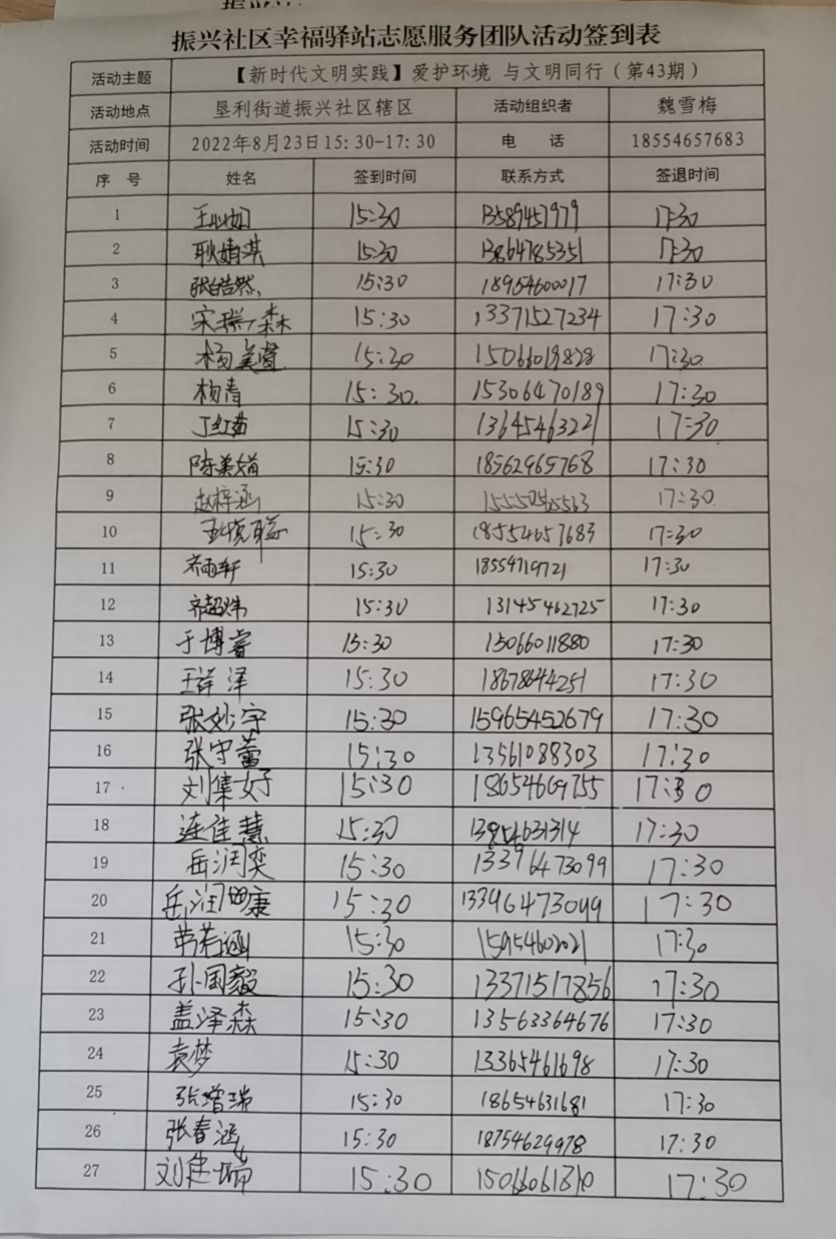 振兴社区幸福驿站志愿服务团队活动签到表
活动主题 【新时代文明实践】爱护环境 与文明同行（第43期）
活动地点 垦利街道振兴社区辖区 活动组织者 魏雪梅
活动时间 2022年8月23日15:30-17:30 电 话 18554657683
序 号 姓名 签到时间 联系方式 签退时间
1 15:30 13589457979 17:30
2 耿婧淇 15:30 13864785351 17:30
3 张皓然 15:30 18954600017 17:30
4 宋瑞森 15:30 13371527234 17:30
5 杨 15:30 15066019828 17:30
6 杨青 15:30 15306470189 17:30
7 丁红茹 15:30 13645463221 17:30
8 陈美娟 15:30 18562965768 17:30
9 赵梓涵 15:30 17:30
10 15:30 18554657683 17:30
11 齐雨轩 15:30 18554719721 17:30
12 齐超炜 15:30 13145462725 17:30
13 于博睿 15:30 15066011880 17:30
14 王祥泽 15:30 18678644251 17:30
15 张妙宇 15:30 15965452679 17:30
16 张守蕾 15:30 13561088303 17:30
17 刘集好 15:30 18654669755 17:30
18 连佳慧 15:30 13954631314 17:30
19 岳润奕 15:30 13396473099 17:30
20 岳润康 15:30 13396473099 17:30
21 若涵 15:30 15954602021 17:30
22 孙国毅 15:30 13371517856 17:30
23 盖泽森 15:30 13563364676 17:30
24 袁梦 15:30 13365461698 17:30
25 张增瑞 15:30 18654631681 17:30
26 张春涵 15:30 18754629978 17:30
27 刘建瑞 15:30 17:30